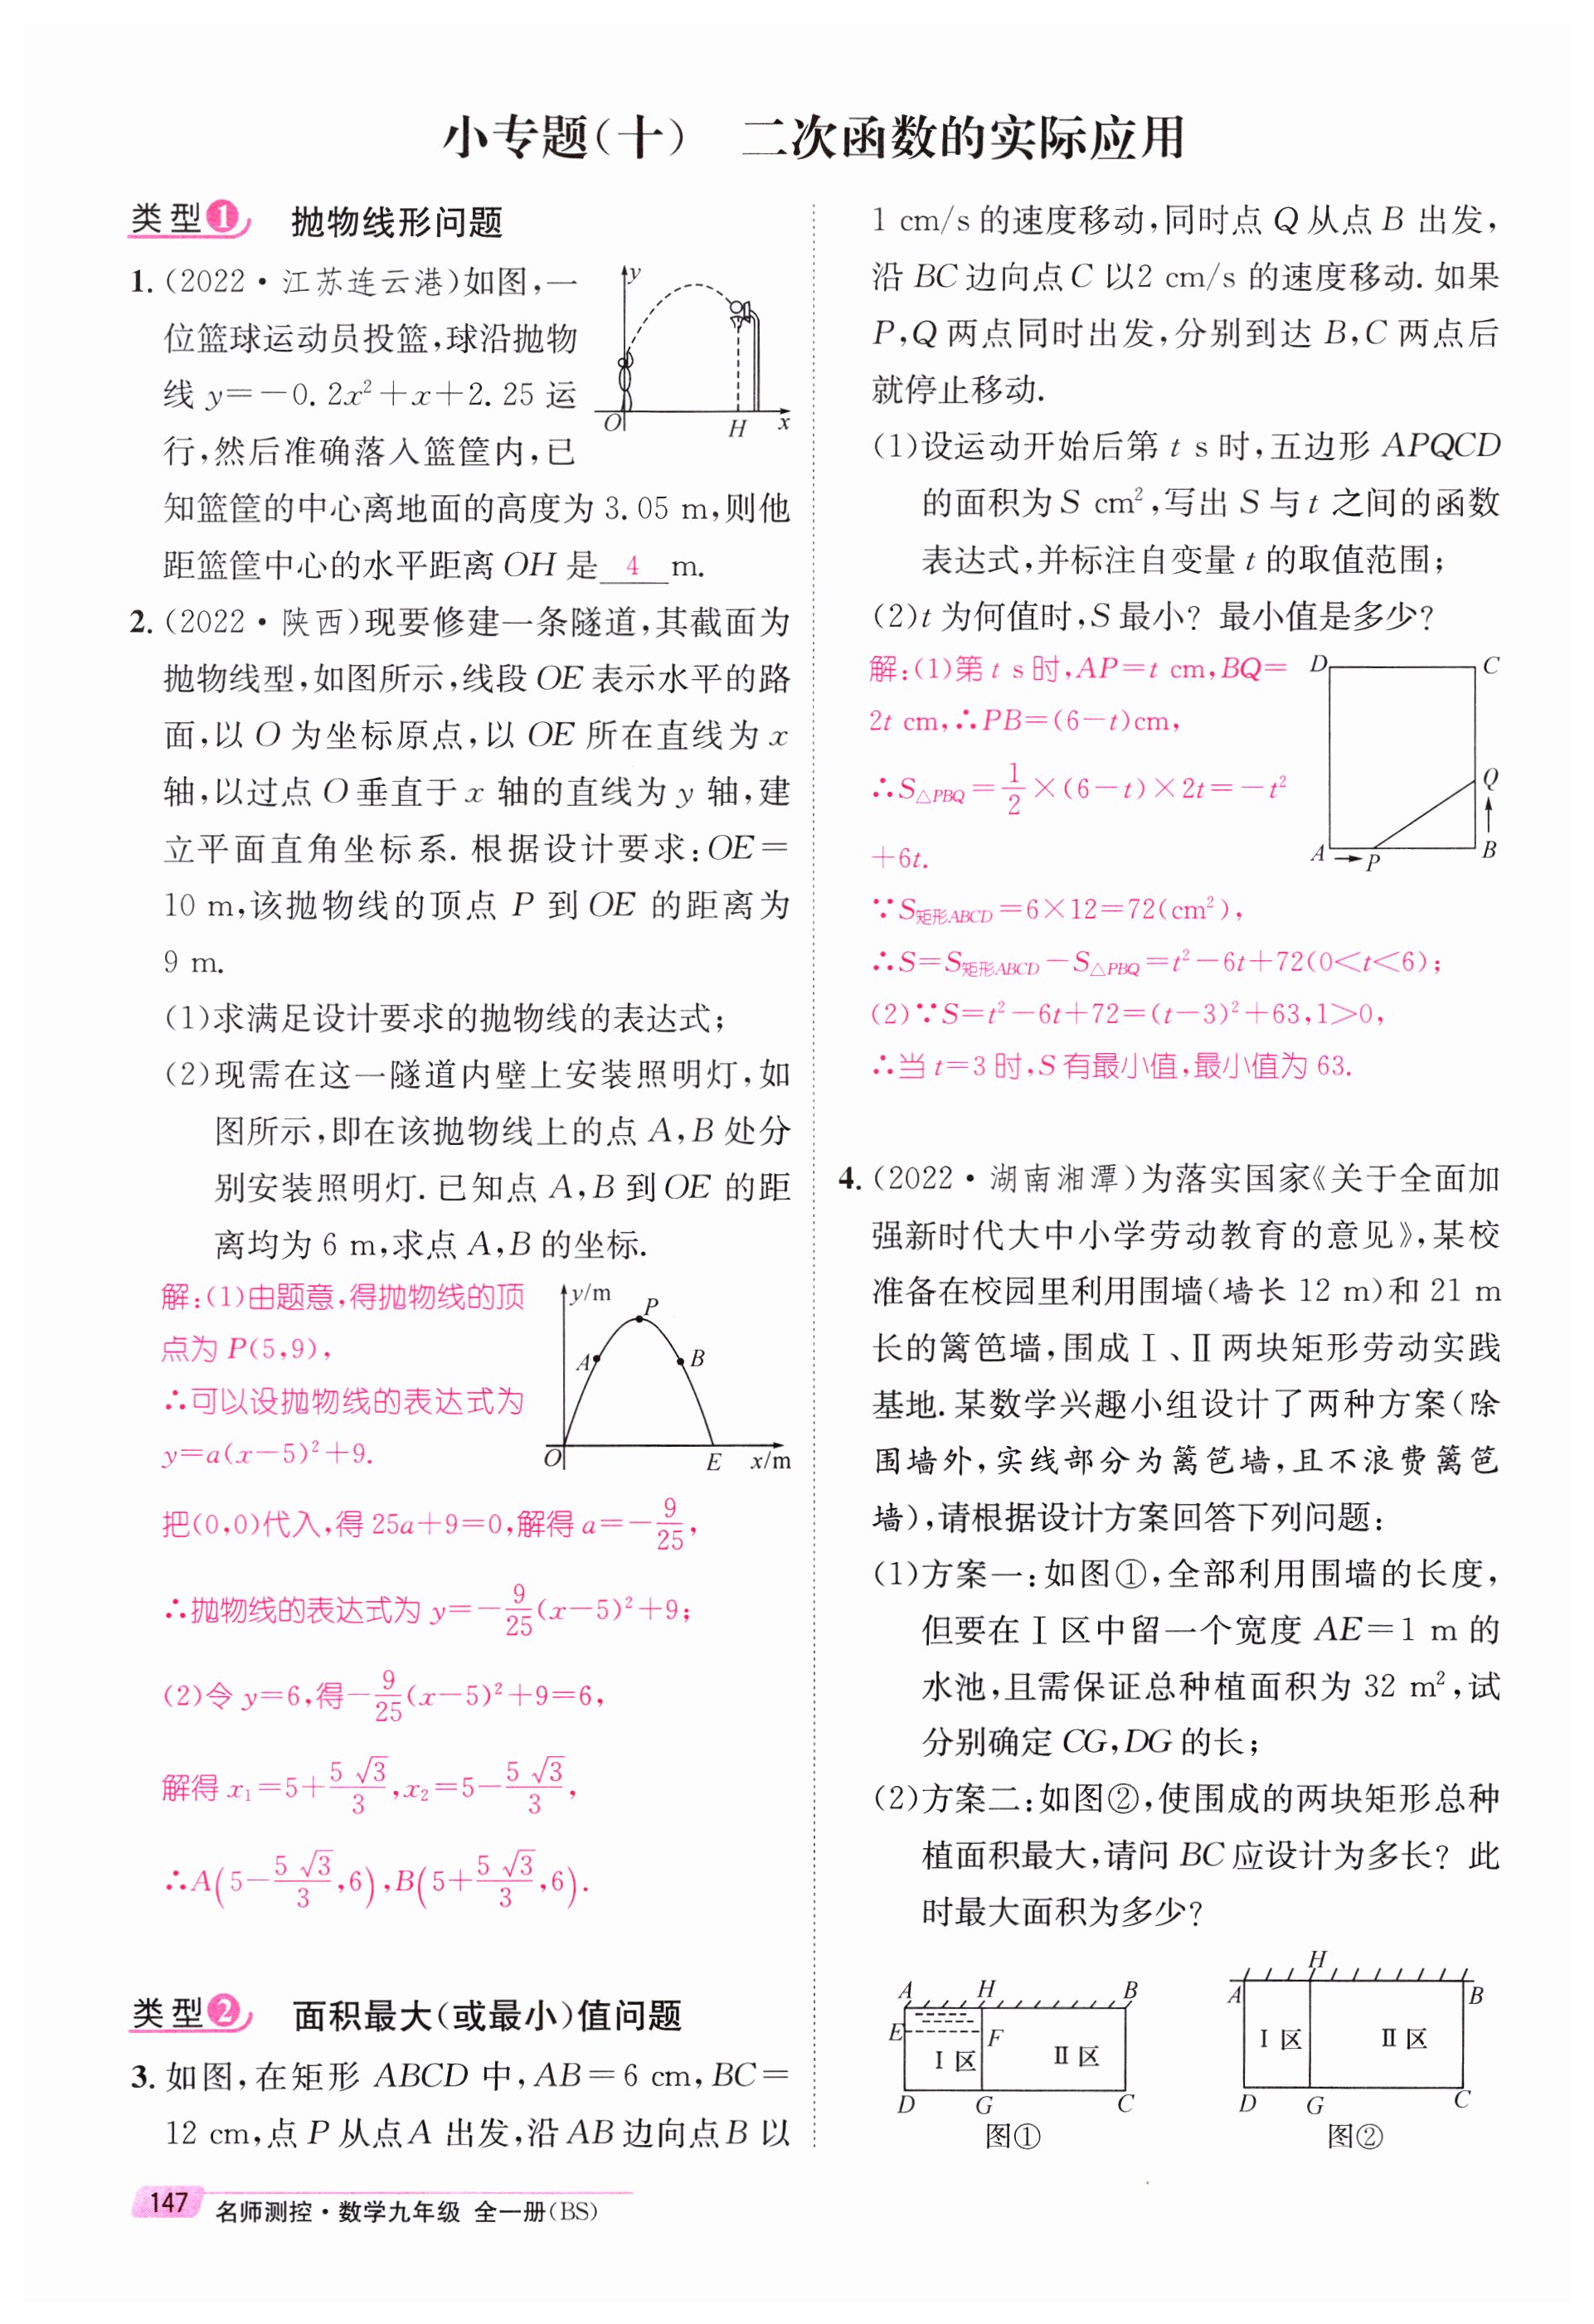 小专题(十)　二次函数的实际应用
类型1　抛物线形问题
1.(2022·江苏连云港)如图,一
位篮球运动员投篮,球沿抛物
线 y=-0.2x²+x+2.25 运
行,然后准确落入篮筐内,已
知篮筐的中心离地面的高度为 3.05 m,则他
距篮筐中心的水平距离 OH 是 4 m.
y
O
H
x
2.(2022·陕西)现要修建一条隧道,其截面为
抛物线型,如图所示,线段 OE 表示水平的路
面,以 O 为坐标原点,以 OE 所在直线为 x
轴,以过点 O 垂直于 x 轴的直线为 y 轴,建
立平面直角坐标系. 根据设计要求:OE=
10 m,该抛物线的顶点 P 到 OE 的距离为
9 m.
(1)求满足设计要求的抛物线的表达式;
(2)现需在这一隧道内壁上安装照明灯,如
图所示,即在该抛物线上的点 A,B 处分
别安装照明灯. 已知点 A,B 到 OE 的距
离均为 6 m,求点 A,B 的坐标.
解:(1)由题意,得抛物线的顶
点为 P(5,9),
∴可以设抛物线的表达式为
y=a(x-5)²+9.
y/m
P
A
B
O
E
x/m
把(0,0)代入,得 25a+9=0,解得 a=-9/25,
∴抛物线的表达式为 y=-9/25(x-5)²+9;
(2)令 y=6,得-9/25(x-5)²+9=6,
解得 x₁=5+5√3/3,x₂=5-5√3/3,
∴A(5-5√3/3,6),B(5+5√3/3,6).
类型2　面积最大(或最小)值问题
3. 如图,在矩形 ABCD 中,AB=6 cm,BC=
12 cm,点 P 从点 A 出发,沿 AB 边向点 B 以
1 cm/s 的速度移动,同时点 Q 从点 B 出发,
沿 BC 边向点 C 以2 cm/s 的速度移动. 如果
P,Q 两点同时出发,分别到达 B,C 两点后
就停止移动.
(1)设运动开始后第 t s 时,五边形 APQCD
的面积为 S cm²,写出 S 与 t 之间的函数
表达式,并标注自变量 t 的取值范围;
(2)t 为何值时,S 最小? 最小值是多少?
解:(1)第 t s 时,AP=t cm,BQ=
2t cm,∴PB=(6-t)cm,
∴S△PBQ=1/2×(6-t)×2t=-t²
+6t.
D
C
Q
A
P
B
∵S矩形ABCD=6×12=72(cm²),
∴S=S矩形ABCD-S△PBQ=t²-6t+72(0<t<6);
(2)∵S=t²-6t+72=(t-3)²+63,1>0,
∴当 t=3 时,S 有最小值,最小值为 63.
4.(2022·湖南湘潭)为落实国家《关于全面加
强新时代大中小学劳动教育的意见》,某校
准备在校园里利用围墙(墙长 12 m)和 21 m
长的篱笆墙,围成Ⅰ、Ⅱ两块矩形劳动实践
基地. 某数学兴趣小组设计了两种方案(除
围墙外,实线部分为篱笆墙,且不浪费篱笆
墙),请根据设计方案回答下列问题:
(1)方案一:如图①,全部利用围墙的长度,
但要在Ⅰ区中留一个宽度 AE=1 m 的
水池,且需保证总种植面积为 32 m²,试
分别确定 CG,DG 的长;
(2)方案二:如图②,使围成的两块矩形总种
植面积最大,请问 BC 应设计为多长? 此
时最大面积为多少?
A
H
B
E
F
Ⅰ区
Ⅱ区
D
G
C
图①
H
A
B
Ⅰ区
Ⅱ区
D
G
C
图②
147 名师测控·数学九年级 全一册(BS)